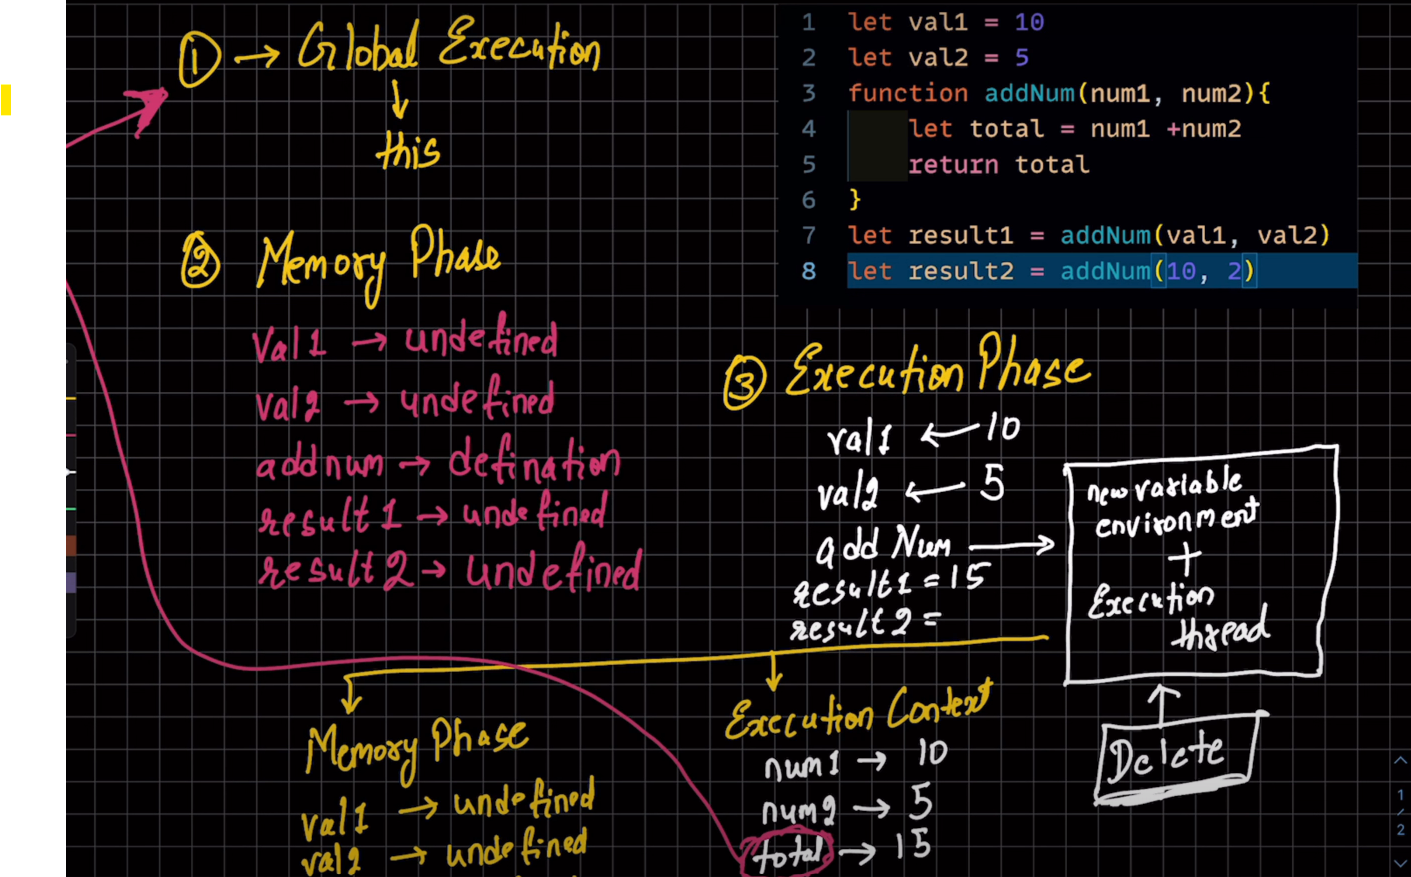 ① → Global Execution
↓
this
② Memory Phase
Val1 → undefined
val2 → undefined
addnum → defination
result1 → undefined
result2 → undefined
1 let val1 = 10
2 let val2 = 5
3 function addNum(num1, num2){
4 let total = num1 +num2
5 return total
6 }
7 let result1 = addNum(val1, val2)
8 let result2 = addNum(10, 2)
③ Execution Phase
val1 ← 10
val2 ← 5
add Num →
result1 = 15
result2 =
new variable
environment
+
Execution
thread
↑
Delete
Memory Phase
val1 → undefined
val2 → undefined
Execution Context
num1 → 10
num2 → 5
total → 15
1
/
2